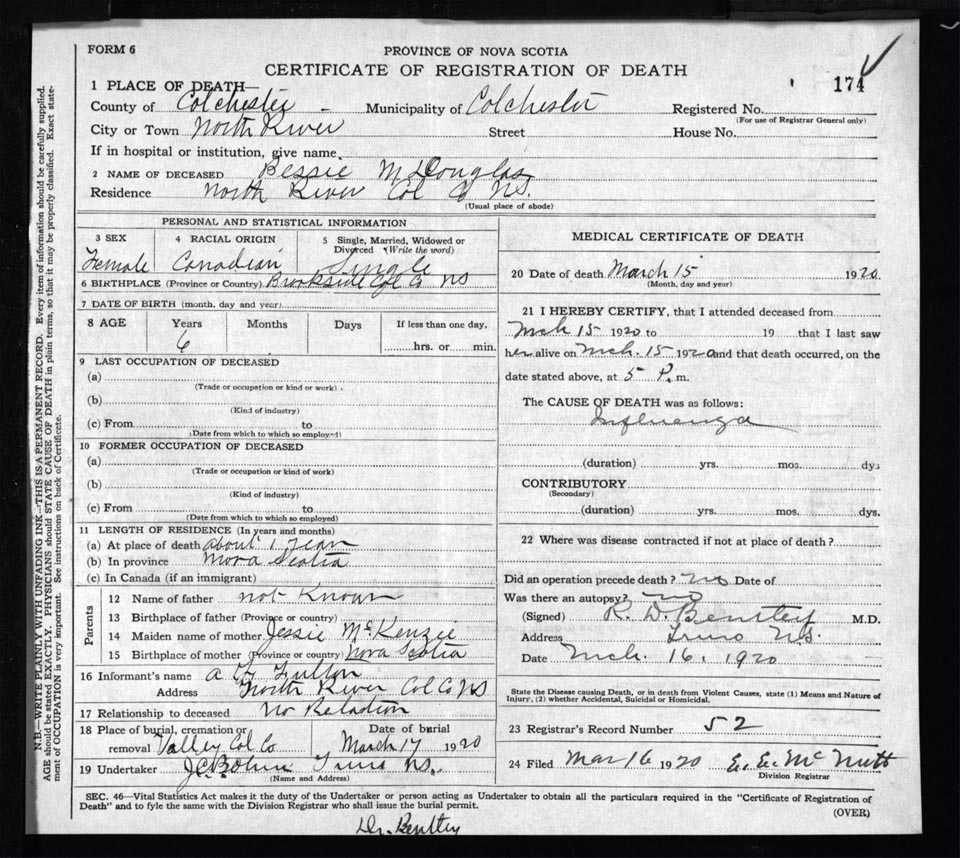 FORM 6
PROVINCE OF NOVA SCOTIA
CERTIFICATE OF REGISTRATION OF DEATH
174
1 PLACE OF DEATH—
County of Colchester Municipality of Colchester Registered No.
(For use of Registrar General only)
City or Town North River Street House No.
If in hospital or institution, give name
2 NAME OF DECEASED Bessie McDouglas
Residence North River Col Co NS.
(Usual place of abode)
PERSONAL AND STATISTICAL INFORMATION
3 SEX 4 RACIAL ORIGIN 5 Single, Married, Widowed or
Divorced (Write the word)
Female Canadian Single
6 BIRTHPLACE (Province or Country) Brookside Col Co NS
7 DATE OF BIRTH (month, day and year)
8 AGE Years Months Days If less than one day,
6 hrs. or min.
9 LAST OCCUPATION OF DECEASED
(a)
(Trade or occupation or kind or work)
(b)
(Kind of industry)
(c) From to
(Date from which to which so employed)
10 FORMER OCCUPATION OF DECEASED
(a)
(Trade or occupation or kind of work)
(b)
(Kind of industry)
(c) From to
(Date from which to which so employed)
11 LENGTH OF RESIDENCE (In years and months)
(a) At place of death about 1 Year
(b) In province Nova Scotia
(c) In Canada (if an immigrant)
Parents
12 Name of father not Known
13 Birthplace of father (Province or country)
14 Maiden name of mother Jessie McKenzie
15 Birthplace of mother (Province or country) Nova Scotia
16 Informant's name Fulton
Address North River Col Co NS
17 Relationship to deceased No Relation
18 Place of burial, cremation or Date of burial
removal Valley Col Co March 17 1920
19 Undertaker Truro NS.
(Name and Address)
MEDICAL CERTIFICATE OF DEATH
20 Date of death March 15 1920
(Month, day and year)
21 I HEREBY CERTIFY, that I attended deceased from
Mch 15 1920 to 19 that I last saw
her alive on Mch. 15 1920 and that death occurred, on the
date stated above, at 5 P. m.
The CAUSE OF DEATH was as follows:
Influenza
(duration) yrs. mos. dys
CONTRIBUTORY
(Secondary)
(duration) yrs. mos. dys.
22 Where was disease contracted if not at place of death?
Did an operation precede death? no Date of
Was there an autopsy? no
(Signed) R. D. Bentley M.D.
Address Truro N.S.
Date Mch. 16. 1920
State the Disease causing Death, or in death from Violent Causes, state (1) Means and Nature of
Injury, (2) whether Accidental, Suicidal or Homicidal.
23 Registrar's Record Number 52
24 Filed Mar 16 1920 E. E. McNutt
Division Registrar
SEC. 46—Vital Statistics Act makes it the duty of the Undertaker or person acting as Undertaker to obtain all the particulars required in the "Certificate of Registration of
Death" and to fyle the same with the Division Registrar who shall issue the burial permit.
(OVER)
Dr. Bentley
N.B.—WRITE PLAINLY WITH UNFADING INK—THIS IS A PERMANENT RECORD. Every item of information should be carefully supplied.
AGE should be stated EXACTLY. PHYSICIANS should STATE CAUSE OF DEATH in plain terms, so that it may be properly classified. Exact state-
ment of OCCUPATION is very important. See instructions on back of Certificate.